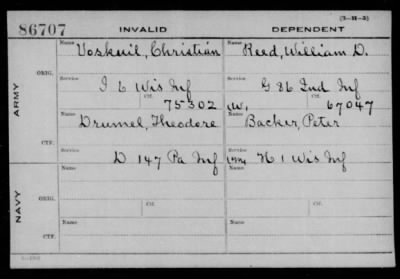 (3-H-3)
86707 INVALID DEPENDENT
Name Voskuil, Christian Name Reed, William D.
ORIG.
Service I 6 Wis Inf Service G 86 Ind Inf
Ctf. 75302 W. Ctf. 67047
ARMY
Name Drumel, Theodore Name Backer, Peter
CTF.
Service D 147 Pa Inf H 1 Wis Inf
Name Name
ORIG.
Service Ctf. Service Ctf.
NAVY
Name Name
CTF.